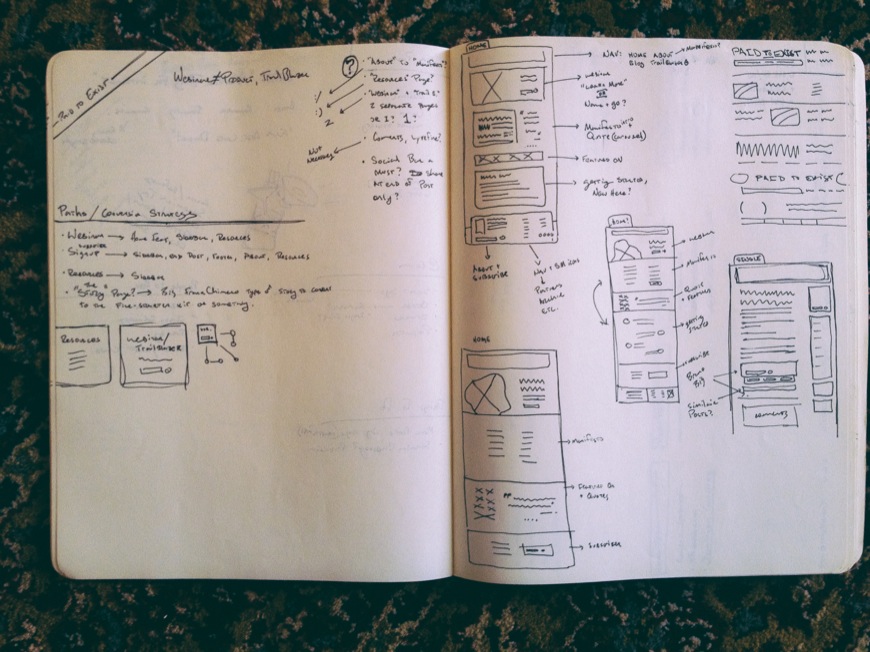 PAID TO EXIST
WEBINAR ≠ PRODUCT, TRAILBLAZER
?
• "ABOUT" TO "MANIFESTO"?
• "RESOURCES" PAGE?
• "WEBINAR" + TRAIL
2 SEPARATE PAGES
OR 1? 1?
:/
:)
2
• COMMENTS, LIVEFYRE?
NOT NECESSARY
• SOCIAL BAR A
MUST? SHARE
AT END OF POST
ONLY?
PATHS / CONVERSION STRATEGY
• WEBINAR → HOME FEAT, SIDEBAR, RESOURCES
• SIGNUP → SIDEBAR, END POST, FOOTER, ABOUT, RESOURCES
• RESOURCES → SIDEBAR
• "THE STORY" PAGE? → BIG FRANKCHIMERO TYPE OF STORY TO
TO THE FIRE-STARTER KIT OR SOMETHING.
RESOURCES
WEBINAR/
TRAILBLAZER
HOME
NAV: HOME ABOUT
BLOG TRAILBLAZER
MANIFESTO?
WEBINAR
"LEARN MORE"
NAME + GO?
MANIFESTO INTO
QUOTE (CAROUSEL)
FEATURED ON
GETTING STARTED,
NEW HERE?
ABOUT +
SUBSCRIBE
NAV + SM ICONS
PARTNERS
ARCHIVE
ETC.
HOME
WEBINAR
MANIFESTO
QUOTE +
FEATURES
GETTING
STARTED
SUBSCRIBE
HOME
MANIFESTO
FEATURED ON
+ QUOTES
SUBSCRIBE
PAID TO EXIST
PAID TO EXIST
SINGLE
BIO
SIMILAR
POSTS?
COMMENTS